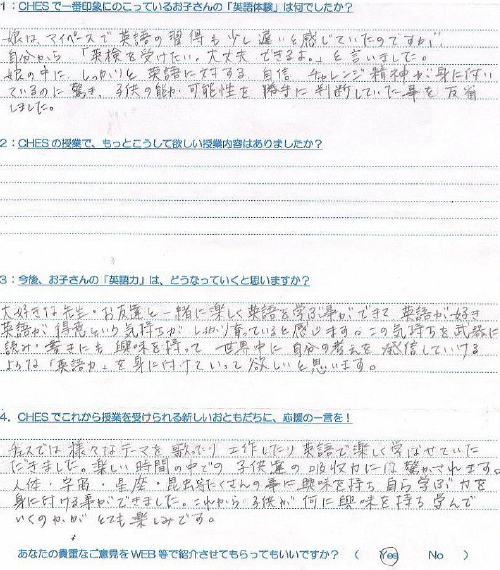 1：CHESで一番印象にのこっているお子さんの「英語体験」は何でしたか？
娘は、マイペースで英語の習得も少し遅いと感じていたのですが、
自分から「英検を受けたい。大丈夫できるよ。」と言いました。
娘の中に、しっかりと英語に対する自信、チャレンジ精神が身に付い
ているのに驚き、子供の能力可能性を勝手に判断していた事を反省
しました。
2：CHESの授業で、もっとこうして欲しい授業内容はありましたか？
3：今後、お子さんの「英語力」は、どうなっていくと思いますか？
大好きな先生・お友達と一緒に楽しく英語を学ぶ事ができて、英語が好き
英語が得意という気持ちがしっかり育っていると感じます。この気持ちを武器に
読み・書きにも興味を持って、世界中に自分の考えを発信していける
ような「英語力」を身に付けていって欲しいと思います。
4．CHESでこれから授業を受けられる新しいおともだちに、応援の一言を！
チェスでは様々なテーマを歌ったり工作したり英語で楽しく学ばせていた
だきました。楽しい時間の中での子供達の吸収力には驚かされます。
人体・宇宙・星座・昆虫等たくさんの事に興味を持ち自ら学ぶ力を
身に付ける事ができました。これから子供が何に興味を持ち学んで
いくのかがとても楽しみです。
あなたの貴重なご意見をWEB等で紹介させてもらってもいいですか？（ Yes No ）